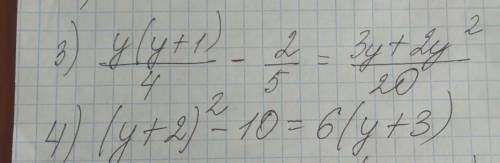 3) y(y+1)/4 - 2/5 = 3y+2y²/20
4) (y+2)² - 10 = 6(y+3)